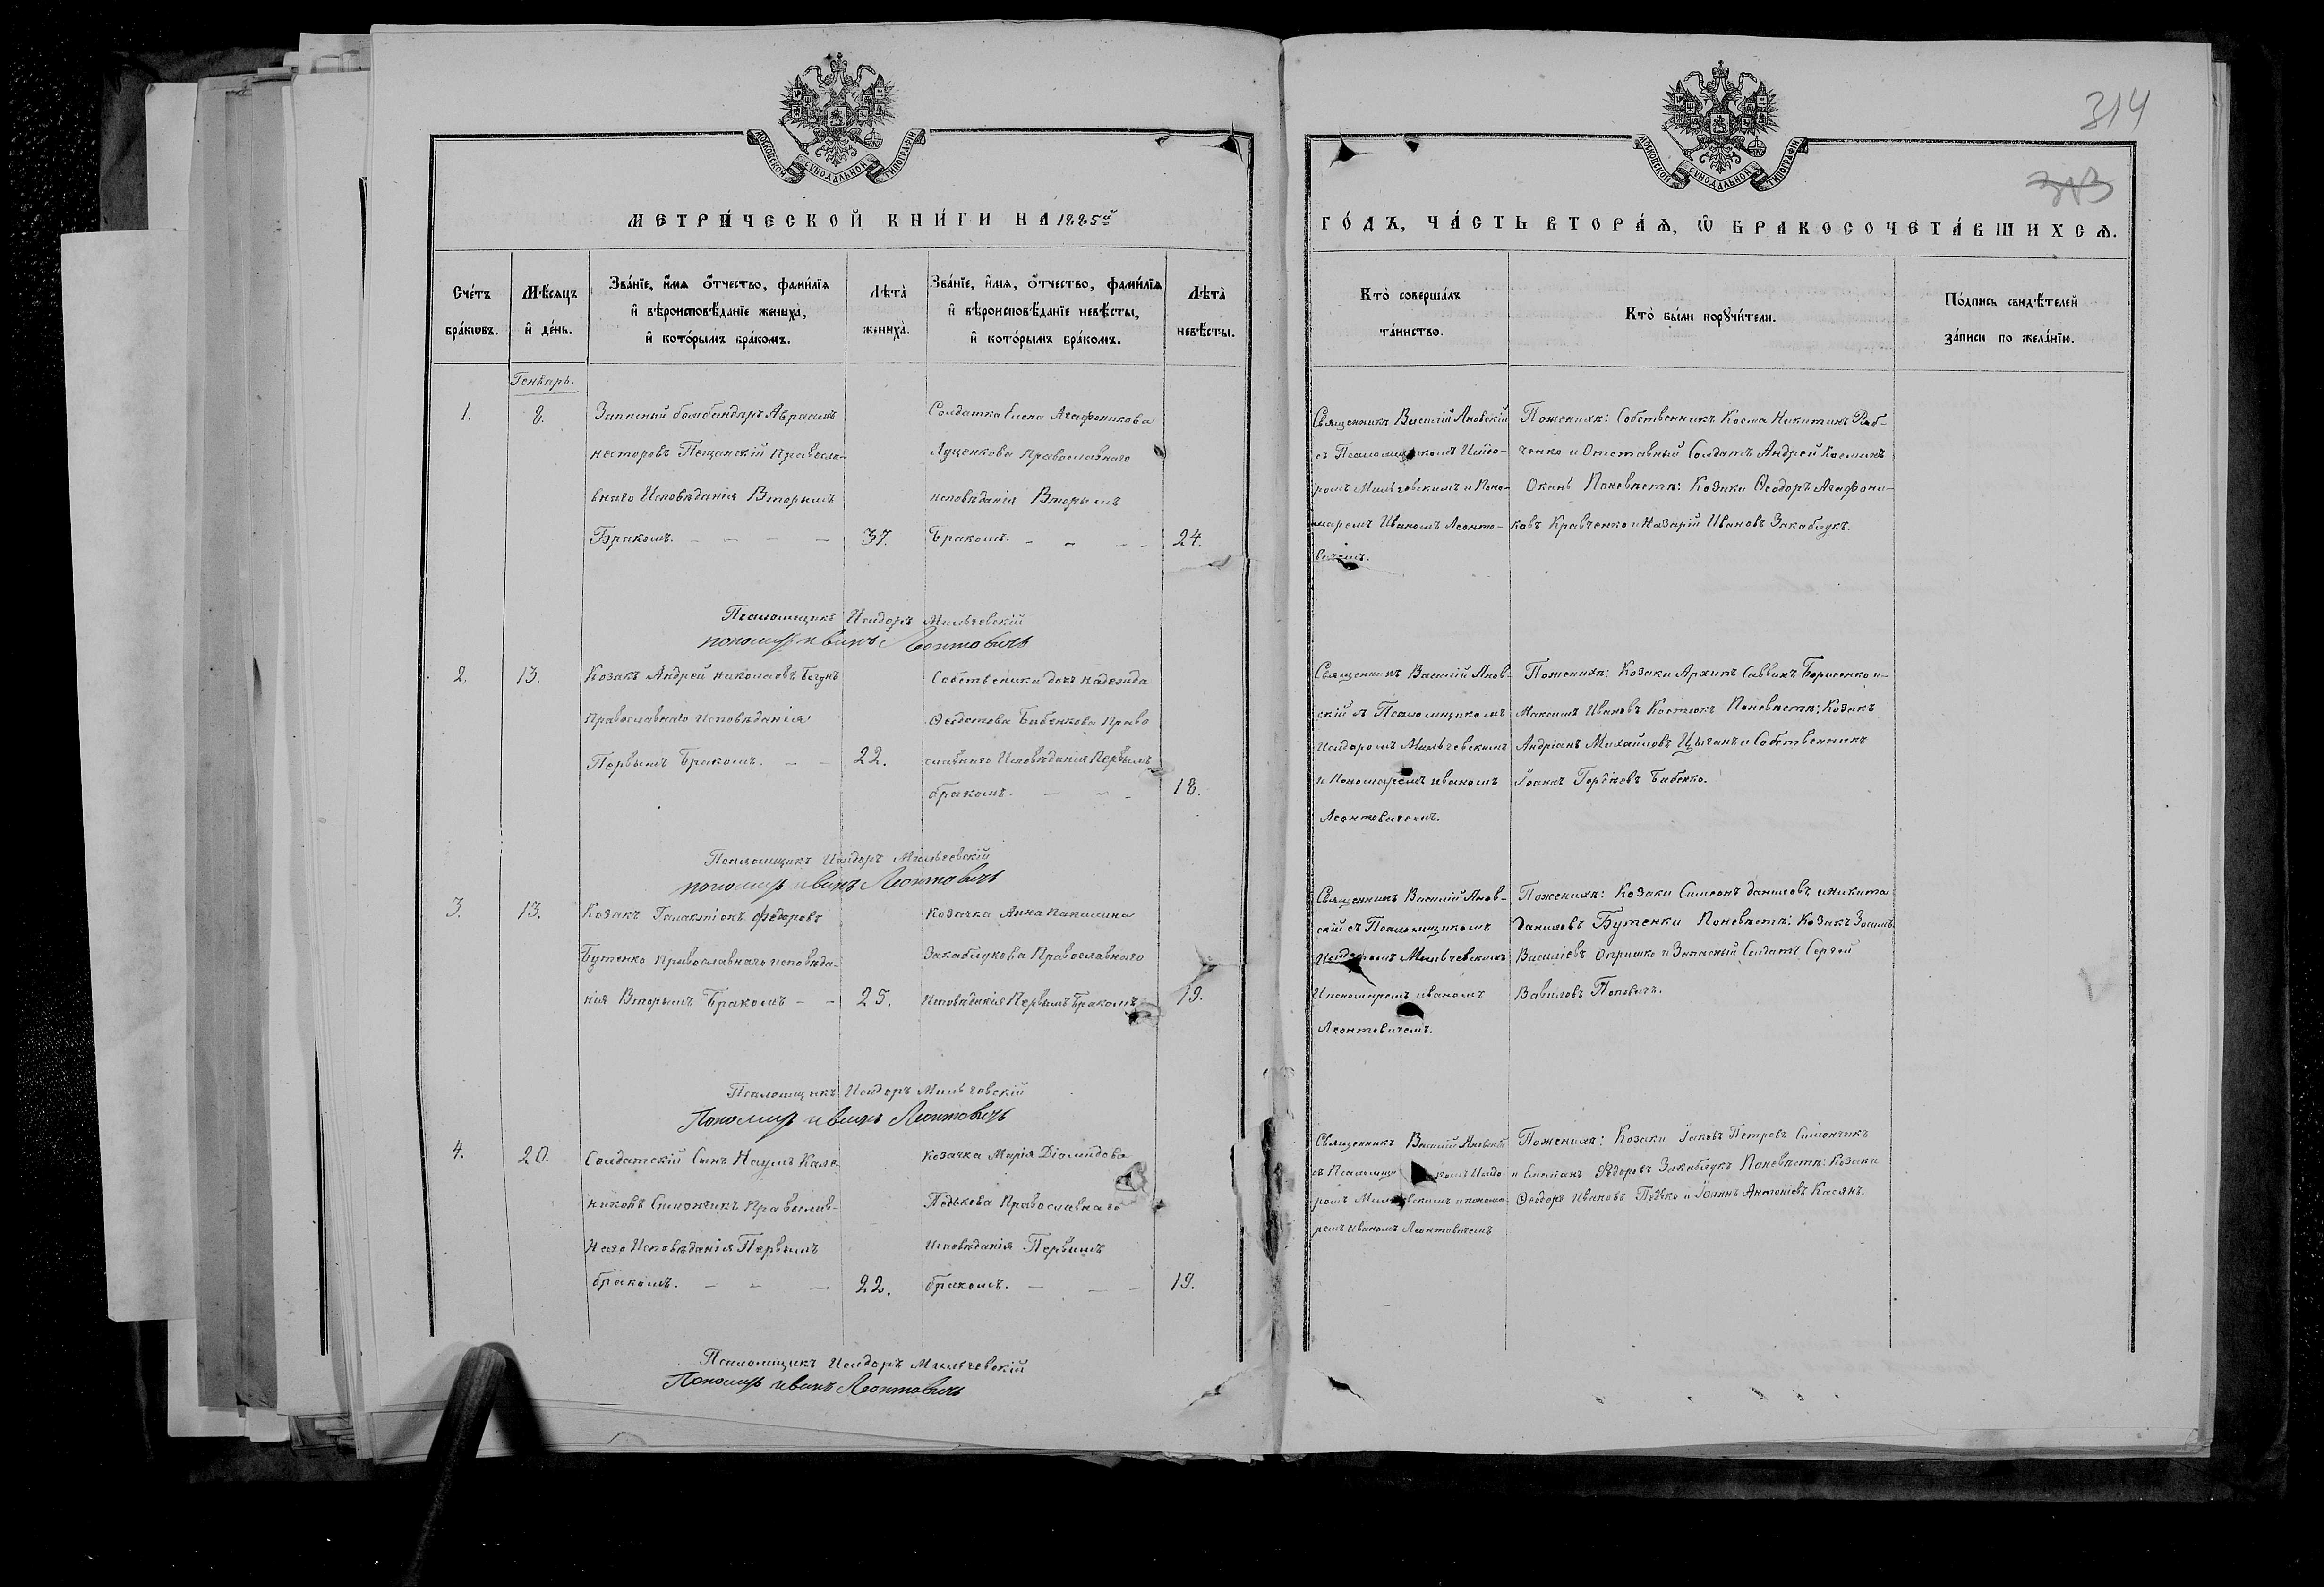 314
313
МОСКОВСКОЙ СѴНОДАЛЬНОЙ ТИПОГРАФІИ
МОСКОВСКОЙ СѴНОДАЛЬНОЙ ТИПОГРАФІИ
МЕТРИ́ЧЕСКОЙ КНИ́ГИ НА 1885й
ГО́ДЪ, ЧА́СТЬ ВТОРА́Ѧ, Ѡ҆ БРАКОСОЧЕТА́ВШИХСѦ.
Сче́тъ
бра́кѡвъ.
Мѣ́сяцъ
и҆ де́нь.
Зва́нїе, и҆́мя о҆́тчество, фами́лїя
и҆ вѣроисповѣ́данїе жениха̀,
и҆ кото́рымъ бра́комъ.
Лѣта̀
жениха̀.
Зва́нїе, и҆́мя, о҆́тчество, фами́лїя
и҆ вѣроисповѣ́данїе невѣ́сты,
и҆ кото́рымъ бра́комъ.
Лѣта̀
невѣ́сты.
Кто̀ соверша́лъ
та́инство.
Кто̀ бы́ли порꙋчи́тели.
По́дпись свидѣ́телей
за́писи по жела́нїю.
Генварь.
1.
8.
Запасный бомбандиръ Авраамъ
Несторовъ Пещанскій Правосла-
внаго Исповѣданія Вторымъ
Бракомъ.
37.
Солдатка Елена Агафоникова
Луценкова Православнаго
исповѣданія Вторымъ
Бракомъ.
24.
Священникъ Василій Яновскій
съ Псаломщикомъ Исидо-
ромъ Мильчевскимъ и Поно-
маремъ Иваномъ Леонто-
вичемъ.
Поженихѣ: Собственникъ Косма Никитинъ Ряб-
ченко и Отставный Солдатъ Андрей Косминъ
Окань Поневѣстѣ: Козаки Ѳеодоръ Агафони-
ковъ Кравченко и Назарій Ивановъ Закаблукъ.
Псаломщикъ Исидоръ Мильчевскій
пономарь иванъ Леонтовичъ
2.
13.
Козакъ Андрей Николаевъ Богунъ
Православнаго исповѣданія
Первымъ Бракомъ.
22.
Собственика дочь Надежда
Ѳедотова Бабенкова Право
славнаго Исповѣданія Первымъ
бракомъ.
18.
Священникъ Василій Янов-
скій съ Псаломщикомъ
Исидоромъ Мильчевскимъ
и Пономаремъ иваномъ
Леонтовичемъ.
Поженихѣ: Козаки Архипъ Саввинъ Борисенко и
Максимъ Ивановъ Костюкъ Поневѣстѣ: Козакъ
Андріанъ Михайловъ Цыганъ и Собственникъ
Іоаннъ Гордѣевъ Бабенко.
Псаломщикъ Исидоръ Мильчевскій
пономарь иванъ Леонтовичъ
3.
13.
Козакъ Галактіонъ Федоровъ
Бутенко Православнаго исповѣда-
нія Вторымъ Бракомъ
25.
Козачка Анна
Закаблукова Православнаго
Исповѣданія Первымъ Бракомъ
19.
Священникъ Василій Янов-
скій съ Псаломщикомъ
Исидоромъ Мильчевскимъ
И пономаремъ иваномъ
Леонтовичемъ.
Поженихѣ: Козаки Симеонъ Даниловъ и Никита
Даниловъ Бутенки Поневѣстѣ: Козакъ Зосимъ
Василіевъ Опришко и Запасный Солдатъ Сергѣй
Вавиловъ Поповичъ.
Псаломщикъ Исидоръ Мильчевскій
Пономарь иванъ Леонтовичъ
4.
20.
Солдатскій Сынъ Наумъ Кале-
никовъ Симончикъ Православ-
наго Исповѣданія Первымъ
бракомъ.
22.
Козачка Марія Діомидова
Педькова Православнаго
Исповѣданія Первымъ
бракомъ.
19.
Священникъ Василій Яновскій
съ Псаломщикомъ Исидо
ромъ Мильчевскимъ и понома-
ремъ Иваномъ Леонтовичемъ
Поженихѣ: Козаки Іаковъ Петровъ Симончикъ
и Емеліанъ Ѳедоровъ Закаблукъ Поневѣстѣ: Козаки
Ѳеодоръ Ивановъ Педько и Іоаннъ Антоніевъ Касянъ.
Псаломщикъ Исидоръ Мильчевскій
Пономарь иванъ Леонтовичъ